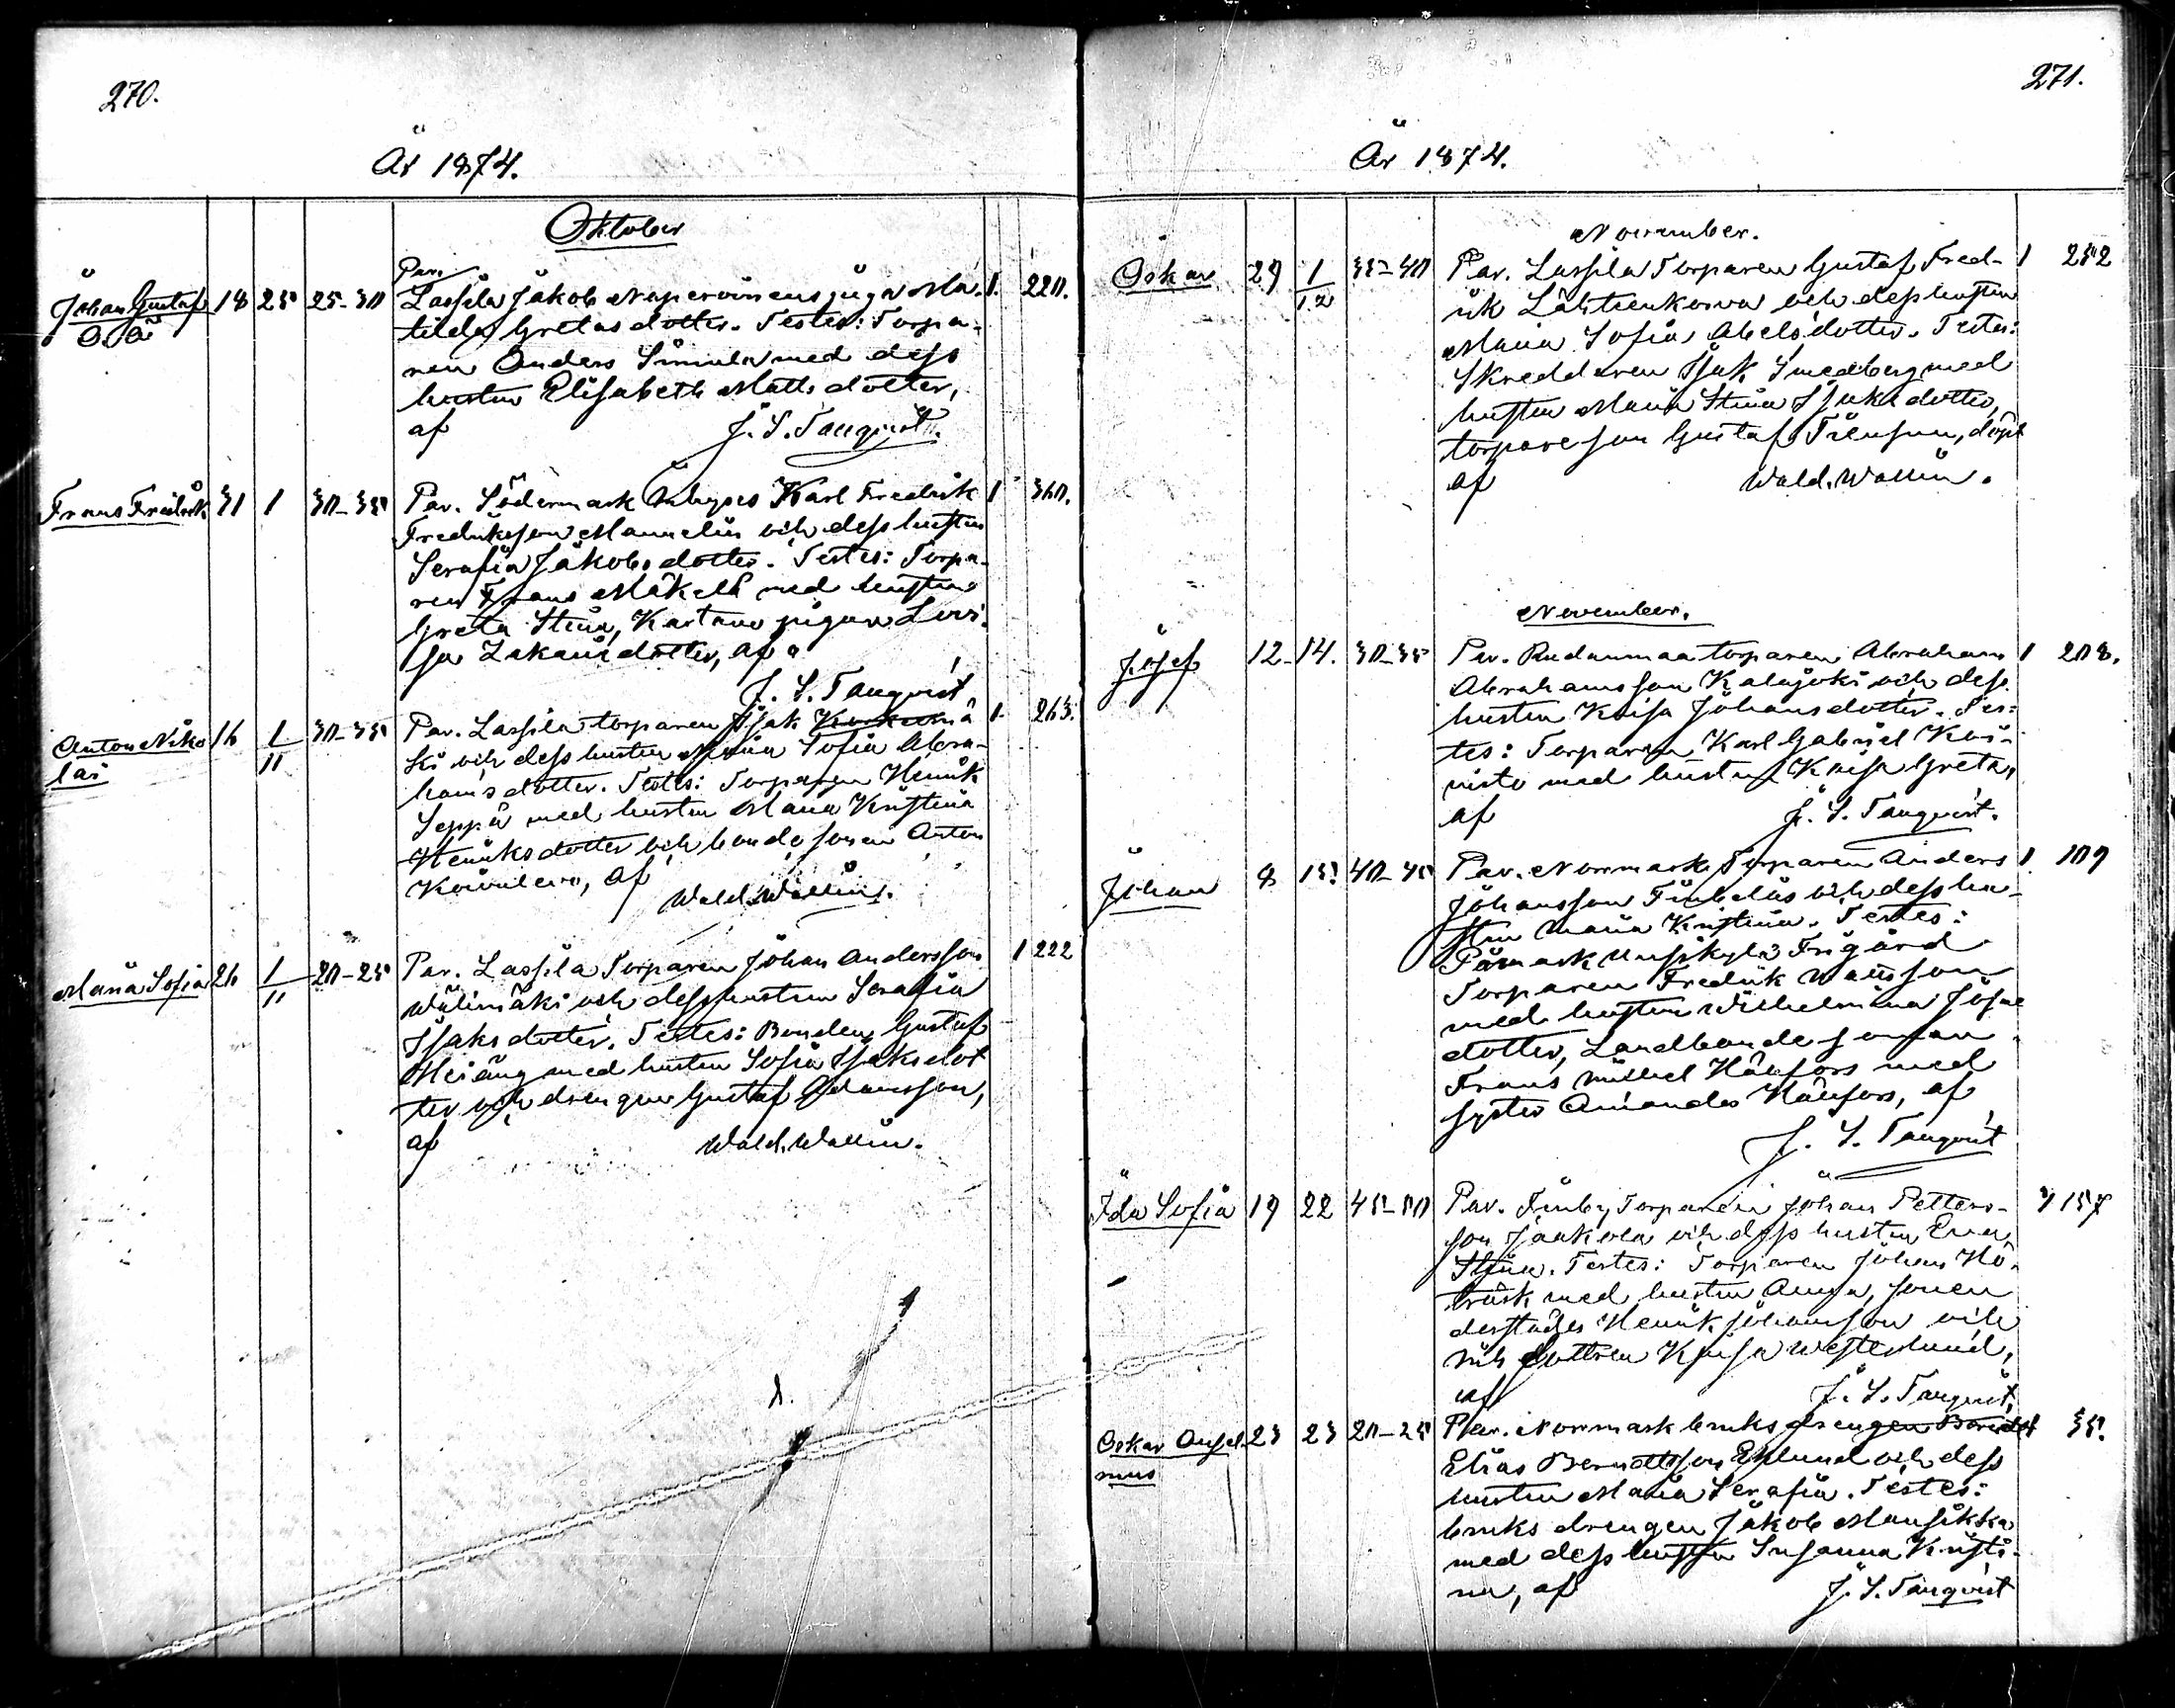 270.
År 1874.
Oktober
Johan Gustaf 18 25 25-30 Par. 1. 220.
O. Ä.
Lassila Jakob piga Ma-
tilda Gretasdotter. Testes: Torpa-
ren Anders Simula med dess
hustru Elisabeth Mattsdotter,
af J. S. Tanqvist.
Frans Fredrik 31 1 30-35 Par. Södermark Karl Fredrik 1 360.
Fredriksson Mannelin och dess hustru
Serafia Jakobsdotter. Testes: Torpa-
ren Frans Mäkelä med hustru
Greta Stina, Kartano pigan Lovi-
sa Sakarisdotter, af
J. S. Tanqvist.
Anton Niko- 16 1/11 30-35 Par. Lassila torparen Isak Korkiamä- 1. 263.
lai
ki och dess hustru Maria Sofia Abra-
hamsdotter. Testes: Torparen Henrik
Seppä med hustru Maria Kristina
Henriksdotter och bondesonen Anton
af Wald. Wallin.
Maria Sofia 26 1/11 20-25 Par. Lassila Torparen Johan Andersson 1 222
Wälimäki och dess hustru Serafia
Isaksdotter. Testes: Bonden Gustaf
med hustru Sofia Isaksdot
ter och drengen Gustaf Adamsson,
af Wald. Wallin.
271.
År 1874.
November.
Oskar 29 1/12 35-40 Par. Lassila Torparen Gustaf Fred- 1 252
rik Lähteenkorva och dess hustru
Maria Sofia Abelsdotter. Testes:
Skreddaren Isak Smedberg med
hustru Maria Stina Isaksdotter,
torpareson Gustaf döpt
af Wald. Wallin.
November.
Josef 12 14. 30-35 Par. Rudanmaa torparen Abraham 1 208.
Abrahamsson Kalajoki och dess
hustru Kaisa Johansdotter. Tes-
tes: Torparen Karl Gabriel Koi-
visto med hustru Kaisa Greta,
af J. S. Tanqvist.
Johan 8 15 40-45 Par. Norrmark Torparen Anders 1 109
Johansson och dess hu-
stru Maria Kristina. Testes:
Påmark Uusikylä Frigård
Torparen Fredrik Mattsson
med hustru Wilhelmina Josefs
dotter, Landbondesonen
Frans Mikkel Hänfors med
syster Amanda Hänfors, af
J. S. Tanqvist
Ida Sofia 19 22 45-50 Par. Finby Torparen Johan Petters- 1 157
son Jaakola och dess hustru Eva
Stina. Testes: Torparen Johan Hö-
träsk med hustru Anna, sonen
derstädes Henrik Johansson och
och dottren Kaisa Westerlund,
af J. S. Tanqvist,
Oskar Ansel- 23 23 20-25 Par. Norrmark bruks drengen Berndt 35.
mus
Elias Berndtsson Eklund och dess
hustru Maria Serafia. Testes:
bruks drengen Jakob Mansikka
med dess hustru Susanna Kristi-
na, af J. S. Tanqvist